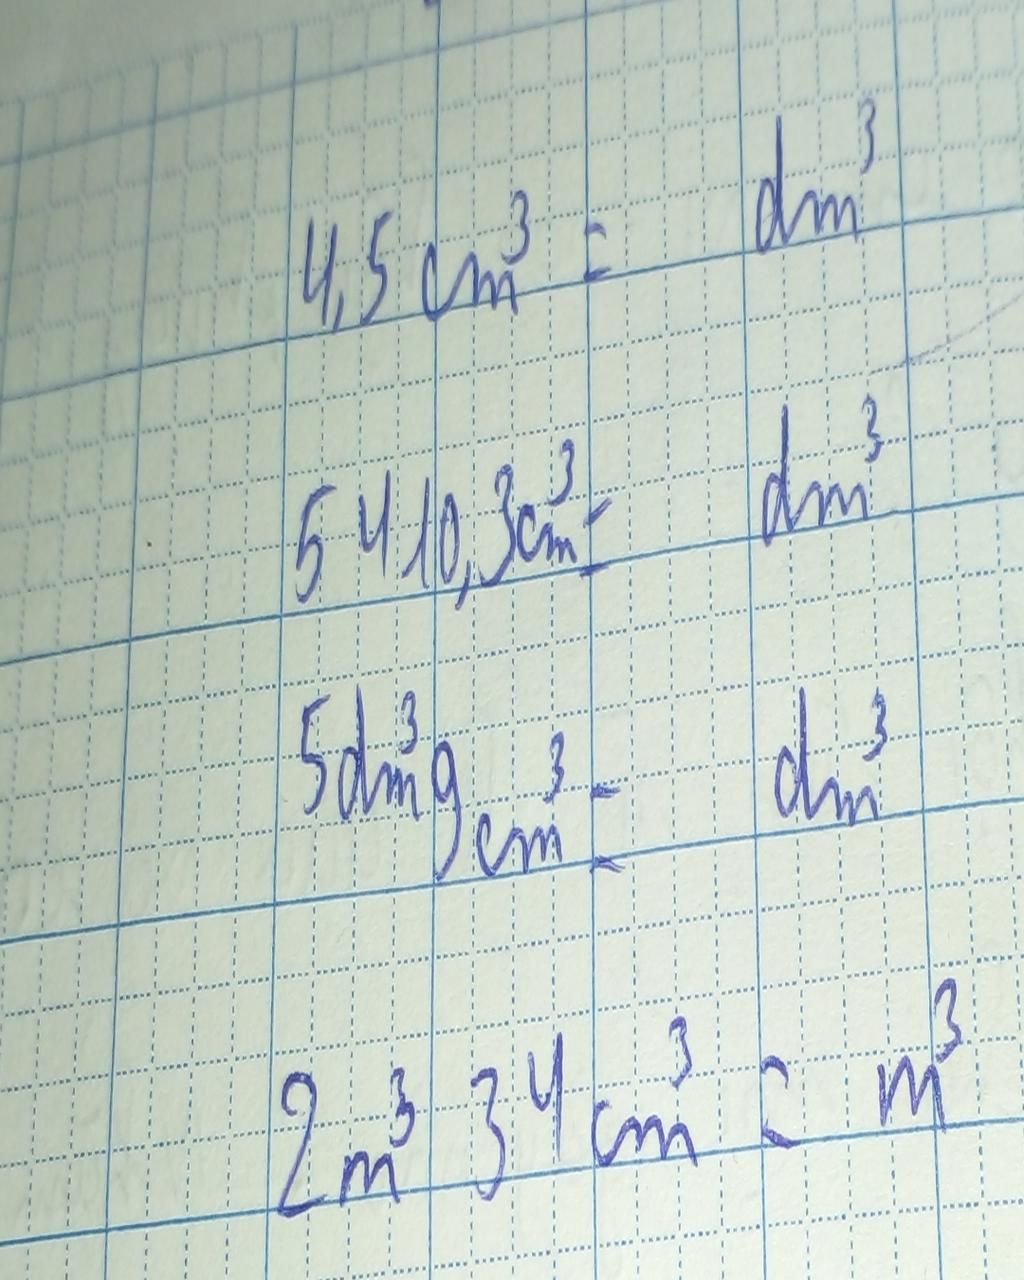 4,5 cm³ = dm³
5410,3cm³ = dm³
5dm³ 9cm³ = dm³
2m³ 34cm³ = m³